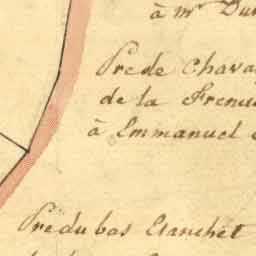 à mr Du
Pré de Chava
de la Frenu
à Emmanuel
Pré du bas Etanchet